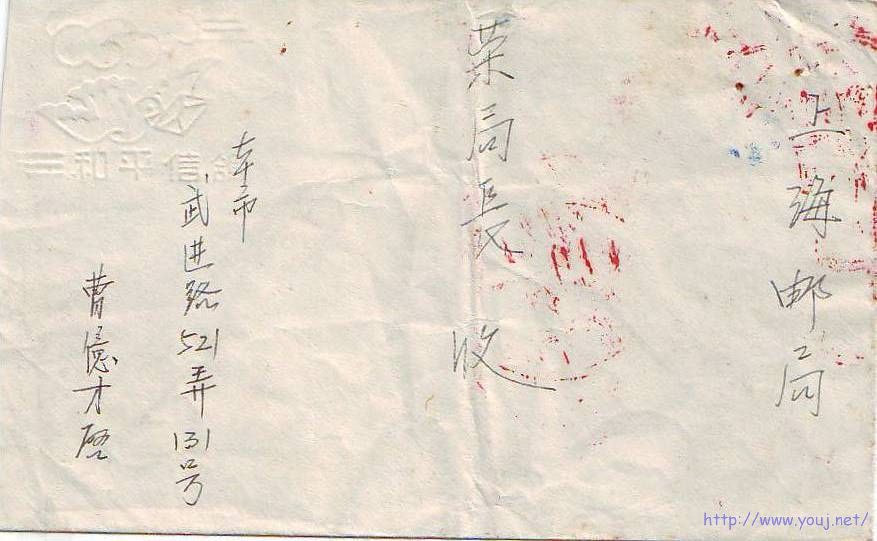 上海邮局
荣局長 收
本市
武进路521弄131号
曹憶才啓
http://www.youj.net/